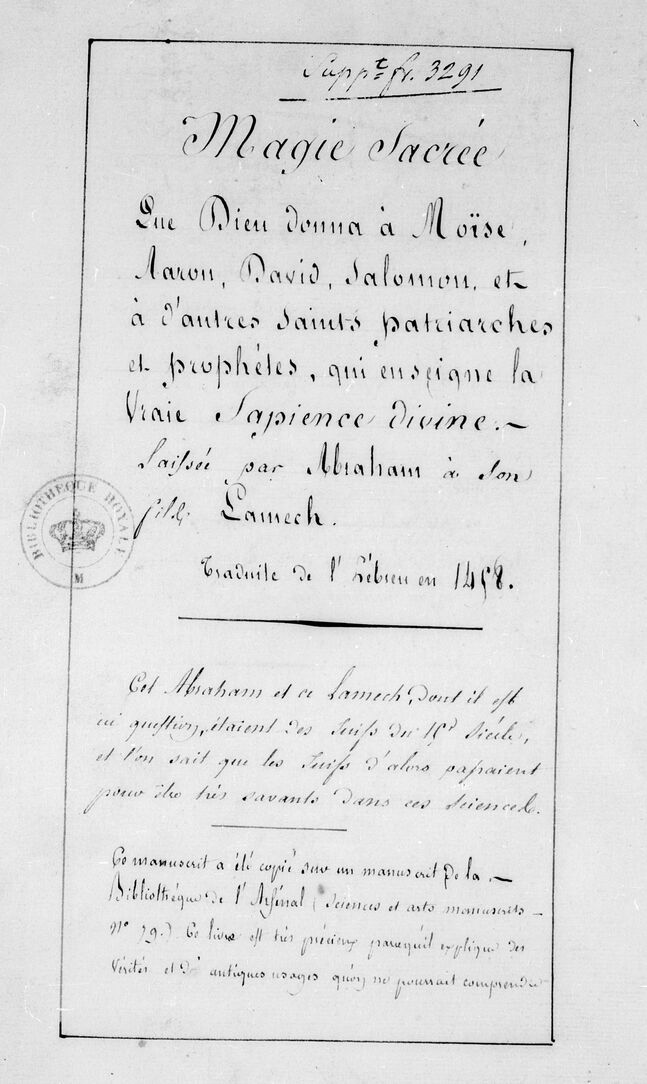 Supp.t fr. 3291
Magie Sacrée
Que Dieu donna à Moïse,
Aaron, David, Salomon, et
à d'autres saints patriarches
et prophétes, qui enseigne la
Vraie Sapience divine.
Laissée par Abraham à son
fils Lamech.
Traduite de l'hébreu en 1458.
BIBLIOTHEQUE ROYALE
M
Cet Abraham et ce Lamech, dont il est
ici question, étaient des Juifs du 15.e Siécle,
et l'on sait que les Juifs d'alors passaient
pour être trés savants dans ces Sciences.
Ce manuscrit a été copié sur un manuscrit de la
Bibliothéque de l'Arsénal (Sciences et arts manuscrits
N° 79.) Ce livre est trés précieux parcequ'il explique des
Vérités et d' antiques usages qu'on ne pourrait comprendre